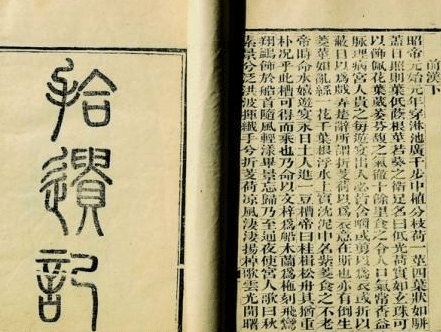 前漢下
昭帝元始元年穿淋池廣千步中植分枝荷一莖四葉狀如駢
蓋日照則葉低蔭根莖若葵之衛足名曰低光荷實如玄珠可
以飾佩花葉葳萎芬馥之氣徹十餘里食之令人口氣常香益
脉理病宮人貴之每遊宴出入必皆含嚼或剪以爲衣或折以
蔽日以爲戲弄楚辭所謂折芰荷以爲衣意在斯也亦有倒生
菱莖如亂絲一花千葉根浮水上實沉泥中名紫菱食之不老
帝時命水嬉遊宴永日士人進一豆槽帝曰桂楫松舟其猶重
朴况乎此槽可得而乘也乃命以文梓爲船木蘭爲柂刻飛鸞
翔鷁飾於船首隨風輕漾畢景忘歸乃至通夜使宮人歌曰秋
素景兮泛洪波揮纖手兮折芰荷凉風淒淒揚棹歌雲光開曙
拾遺記